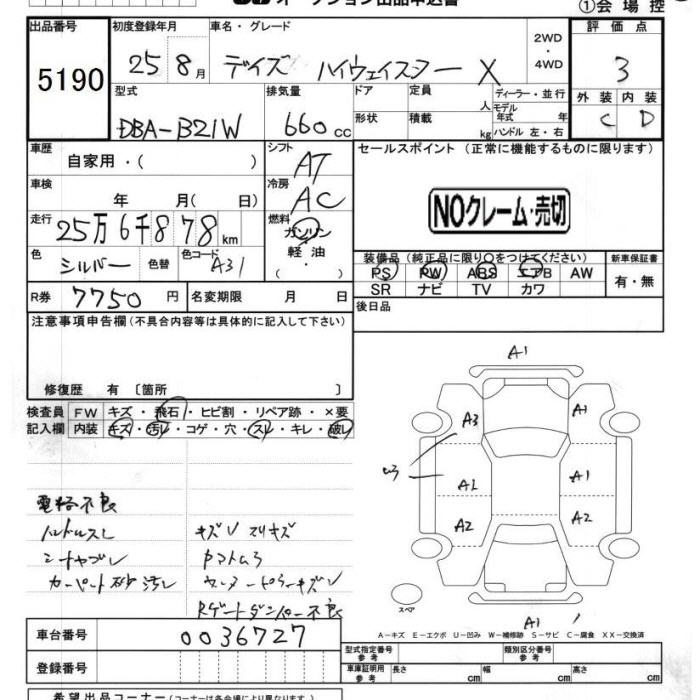 オークション出品申込書
①会場控
出品番号 初度登録年月 車名・グレード 評価点
5190 25 8月 デイズ ハイウェイスター X 2WD・4WD 3
型式 排気量 ドア 定員 人 ディーラー・並行 外装 内装
DBA-B21W 660cc 形状 積載 kg モデル年式 年 ハンドル 左・右 C D
車歴 自家用・( ) シフト AT セールスポイント (正常に機能するものに限ります)
車検 年 月( 日) 冷房 AC NOクレーム・売切
走行 25万6千878km 燃料 ガソリン
色 シルバー 色替 色コード A31 軽油・( ) 装備品(純正品に限り○をつけてください) 新車保証書
PS PW ABS エアB AW 有・無
SR ナビ TV カワ
R券 7750円 名変期限 月 日 後日品
注意事項申告欄(不具合内容等は具体的に記入して下さい)
修復歴 有 〔箇所 〕
検査員 FW キズ・飛石・ヒビ割・リペア跡・×要
記入欄 内装 キズ・汚レ・コゲ・穴・スレ・キレ・破レ
A1
A3 A1
ムラ
A2 A1
A2 A2
電格不良
ハンドルスレ キズU スリキズ
シートヤブレ
カーペット砂汚レ
Rゲートダンパー不良
スペア
A1
A-キズ E-エクボ U-凹み W-補修跡 S-サビ C-腐食 XX-交換済
車台番号 0036727 型式指定番号参考 類別区分番号参考
登録番号 車庫証明用参考 長さ cm 幅 cm 高さ cm
希望出品コーナー(コーナーは各会場により異なります)